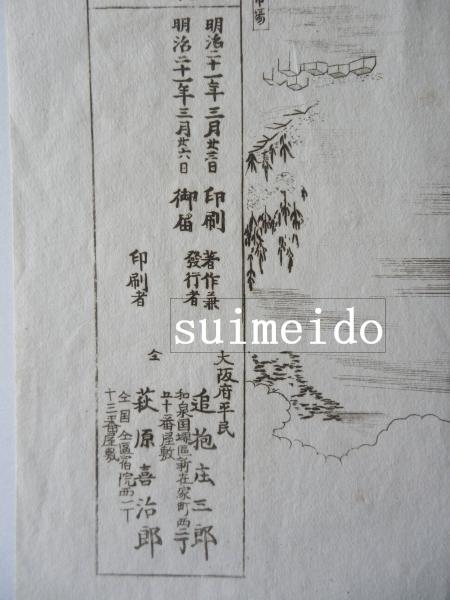 明治二十一年三月廿三日印刷
明治二十一年三月廿六日御届
著作兼
發行者
大阪府平民
追抱庄三郎
和泉国堺區新在家町西二丁
五十番屋敷
印刷者
仝
萩原喜治郎
仝国仝區宿院西一丁
十三番屋敷
suimeido